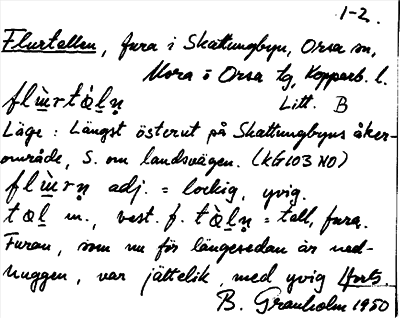 1-2.
Flurtallen, fura i Skattungbyn, Orsa sn,
Mora o Orsa tg, Kopparb. l.
flu̠̇rtàl̥n̥ Litt. B
Läge: Längst österut på Skattungbyns åker-
område, S. om landsvägen. (KG103 NO)
flu̠̇rn̥ adj. = lockig, yvig.
tal m., best. f. tàl̥n̥ = tall, fura.
Furan, som nu för längesedan är ned-
huggen, var jättelik, med yvig Forts.
B. Granholm 1950